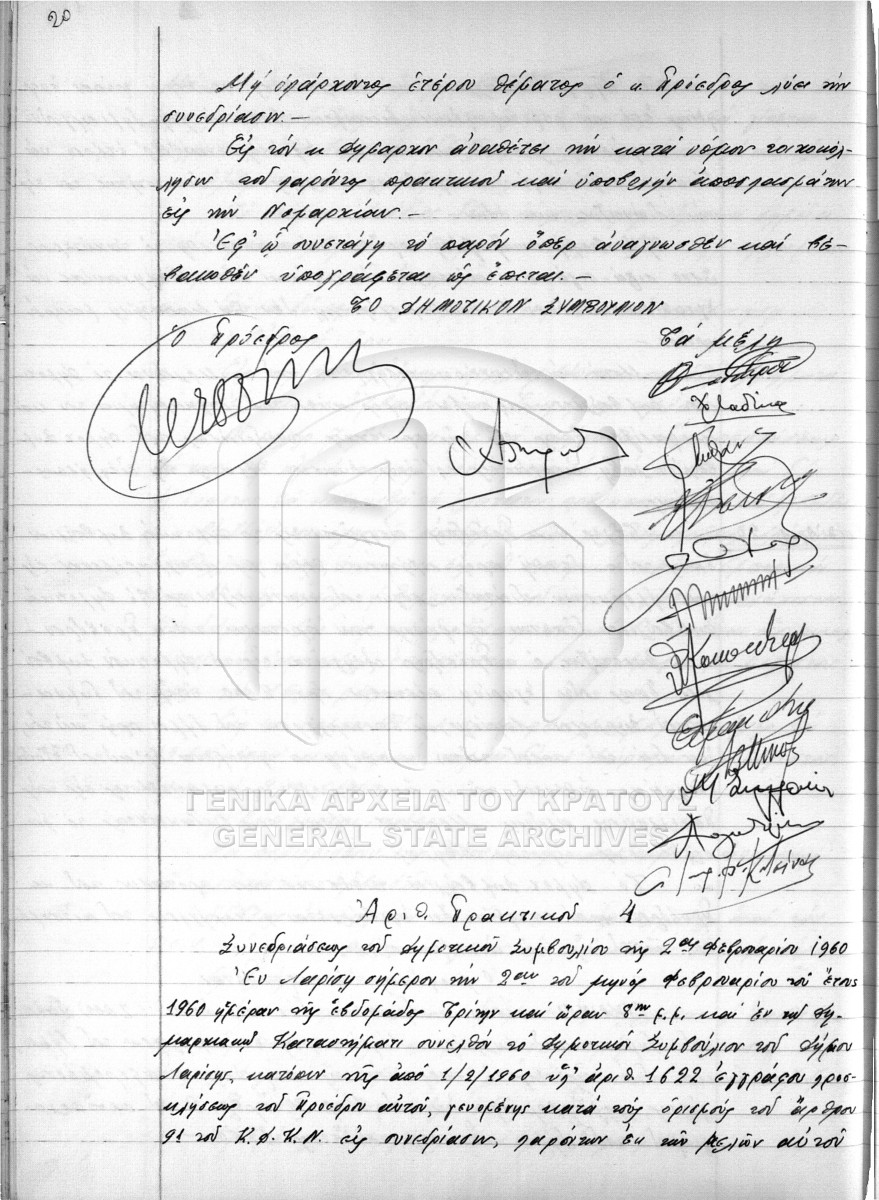 20
Μή ὑπάρχοντος ἑτέρου θέματος ὁ κ. Πρόεδρος λύει τήν
συνεδρίασιν.—
Εἰς τόν κ Δήμαρχον ἀναθέτει τήν κατά νόμον τοιχοκόλ-
λησιν τοῦ παρόντος πρακτικοῦ καί ὑποβολήν ἀποσπασμάτων
εἰς τήν Νομαρχίαν.—
Ἐφ' ᾧ συνετάγη τό παρόν ὅπερ ἀναγνωσθέν καί βε-
βαιωθέν ὑπογράφεται ὡς ἕπεται.—
ΤΟ ΔΗΜΟΤΙΚΟΝ ΣΥΜΒΟΥΛΙΟΝ
Ὁ Πρόεδρος
Τά μέλη
ΓΕΝΙΚΑ ΑΡΧΕΙΑ ΤΟΥ ΚΡΑΤΟΥΣ
GENERAL STATE ARCHIVES
Ἀριθ. Πρακτικοῦ 4
Συνεδριάσεως τοῦ Δημοτικοῦ Συμβουλίου τῆς 2ας Φεβρουαρίου 1960
Ἐν Λαρίσῃ σήμερον τήν 2αν τοῦ μηνός Φεβρουαρίου τοῦ ἔτους
1960 ἡμέραν τῆς ἑβδομάδος Τρίτην καί ὥραν 8ην μ.μ. καί ἐν τῷ Δη-
μαρχιακῷ Καταστήματι συνελθόν τό Δημοτικόν Συμβούλιον τοῦ Δήμου
Λαρίσης, κατόπιν τῆς ἀπό 1/2/1960 ὑπ' ἀριθ. 1622 ἐγγράφου προσ-
κλήσεως τοῦ Προέδρου αὐτοῦ, γενομένης κατά τούς ὁρισμούς τοῦ ἄρθρου
91 τοῦ Κ.Δ.Κ.Ν. εἰς συνεδρίασιν, παρόντων ἐκ τῶν μελῶν αὐτοῦ